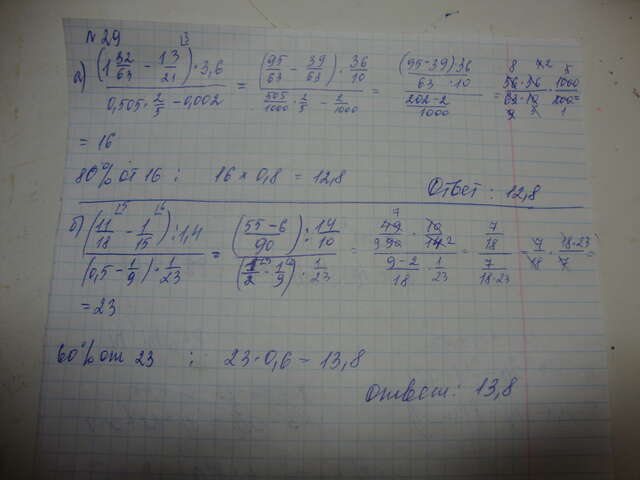 № 29
а) ((1 32/63 − 13/21) · 3,6) / (0,505 · 2/5 − 0,002) = ((95/63 − 39/63) · 36/10) / (505/1000 · 2/5 − 2/1000) = ((95−39) 36 / 63 · 10) / ((202−2)/1000) = (56 · 36)/(63 · 10) · 1000/200 =
= 16
80% от 16 : 16 × 0,8 = 12,8
Ответ : 12,8
б) ((11/18 − 1/15) : 1,4) / ((0,5 − 1/9) · 1/23) = (((55−6)/90) : 14/10) / ((1/2 − 1/9) · 1/23) = (49/90 · 10/14) / ((9−2)/18 · 1/23) = (7/18) / (7/(18·23)) = 7/18 · (18·23)/7 =
= 23
60% от 23 : 23 · 0,6 = 13,8
ответ : 13,8